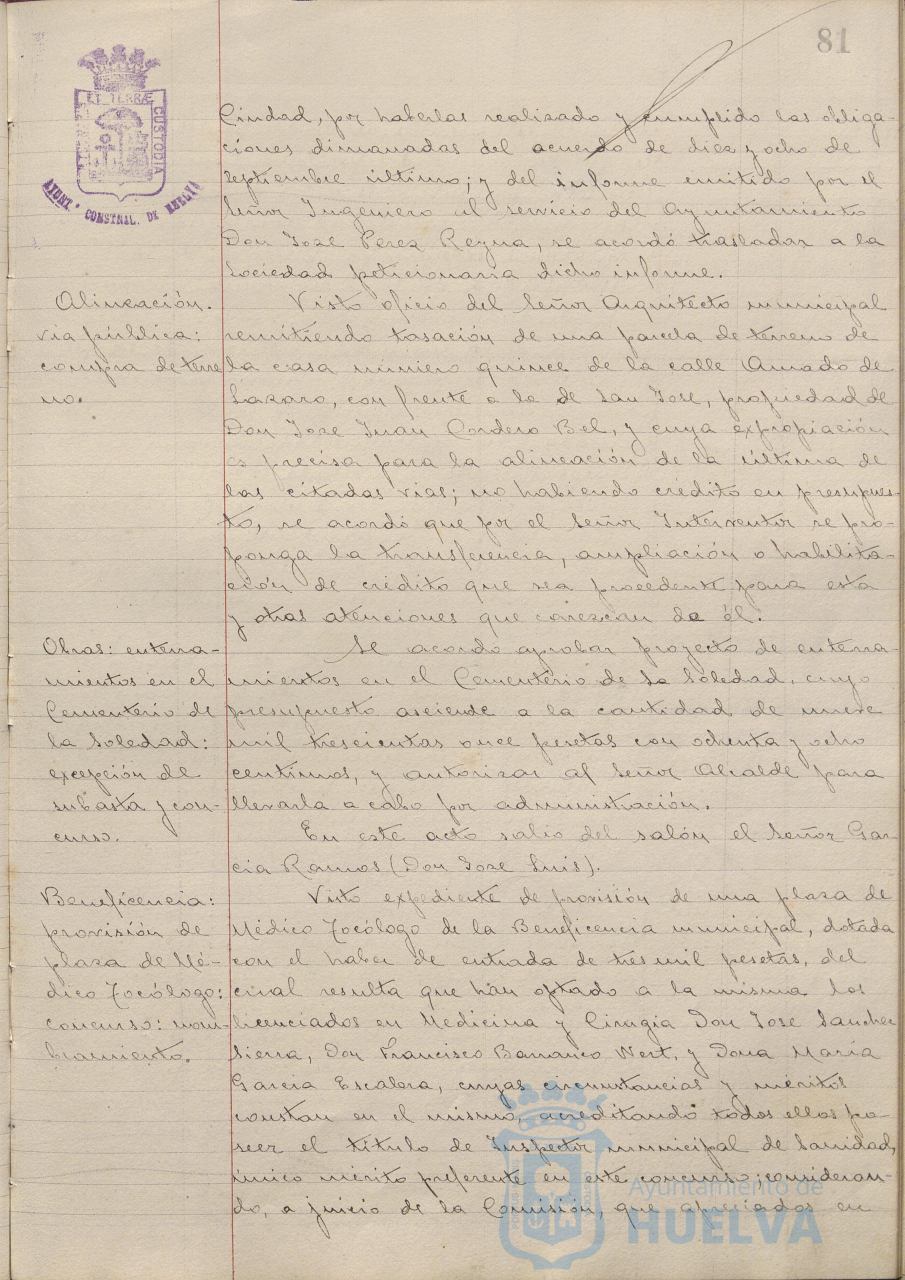 81
ET TERRÆ
CUSTODIA
AYUNT. CONSTNAL. DE HUELVA
Ciudad, por haberlas realizado y cumplido las obliga-
ciones dimanadas del acuerdo de diez y ocho de
septiembre último; y del informe emitido por el
Señor Ingeniero al servicio del Ayuntamiento
Don Jose Perez Reyna, se acordó trasladar a la
Sociedad peticionaria dicho informe.
Alineación.
via pública:
compra de terre
no.
Visto oficio del Señor Arquitecto municipal
remitiendo tasación de una parcela de terreno de
la casa número quince de la calle Amado de
Lázaro, con frente a la de San Jose, propiedad de
Don Jose Juan Cordero Bel, y cuya expropiación
es precisa para la alineación de la última de
las citadas vias; no habiendo crédito en presupues-
to, se acordó que por el Señor Interventor se pro-
ponga la transferencia, ampliación o habilita-
ción de crédito que sea procedente para esta
y otras atenciones que carezcan de él.
Obras: enterra-
mientos en el
Cementerio de
la Soledad:
excepción de
subasta y con-
curso.
Se acordo aprobar proyecto de enterra-
mientos en el Cementerio de la Soledad, cuyo
presupuesto asciende a la cantidad de nueve
mil trescientas once pesetas con ochenta y ocho
centimos, y autorizar al Señor Alcalde para
llevarla a cabo por administración.
En este acto salió del salón el Señor Gar-
cia Ramos (Don Jose Luis).
Beneficencia:
provisión de
plaza de Mé-
dico Tocólogo:
concurso: nom-
bramiento.
Visto expediente de provisión de una plaza de
Médico Tocólogo de la Beneficencia municipal, dotada
con el haber de entrada de tres mil pesetas, del
cual resulta que han optado a la misma los
licenciados en Medicina y Cirugia Don Jose Sanchez
Sierra, Don Francisco Barranco Wert, y Dona María
Garcia Escalera, cuyas circunstancias y méritos
constan en el mismo, acreditando todos ellos po-
seer el titulo de Inspector municipal de Sanidad,
único mérito preferente en este concurso; consideran-
do, a juicio de la Comisión, que apreciados en
Ayuntamiento de
HUELVA